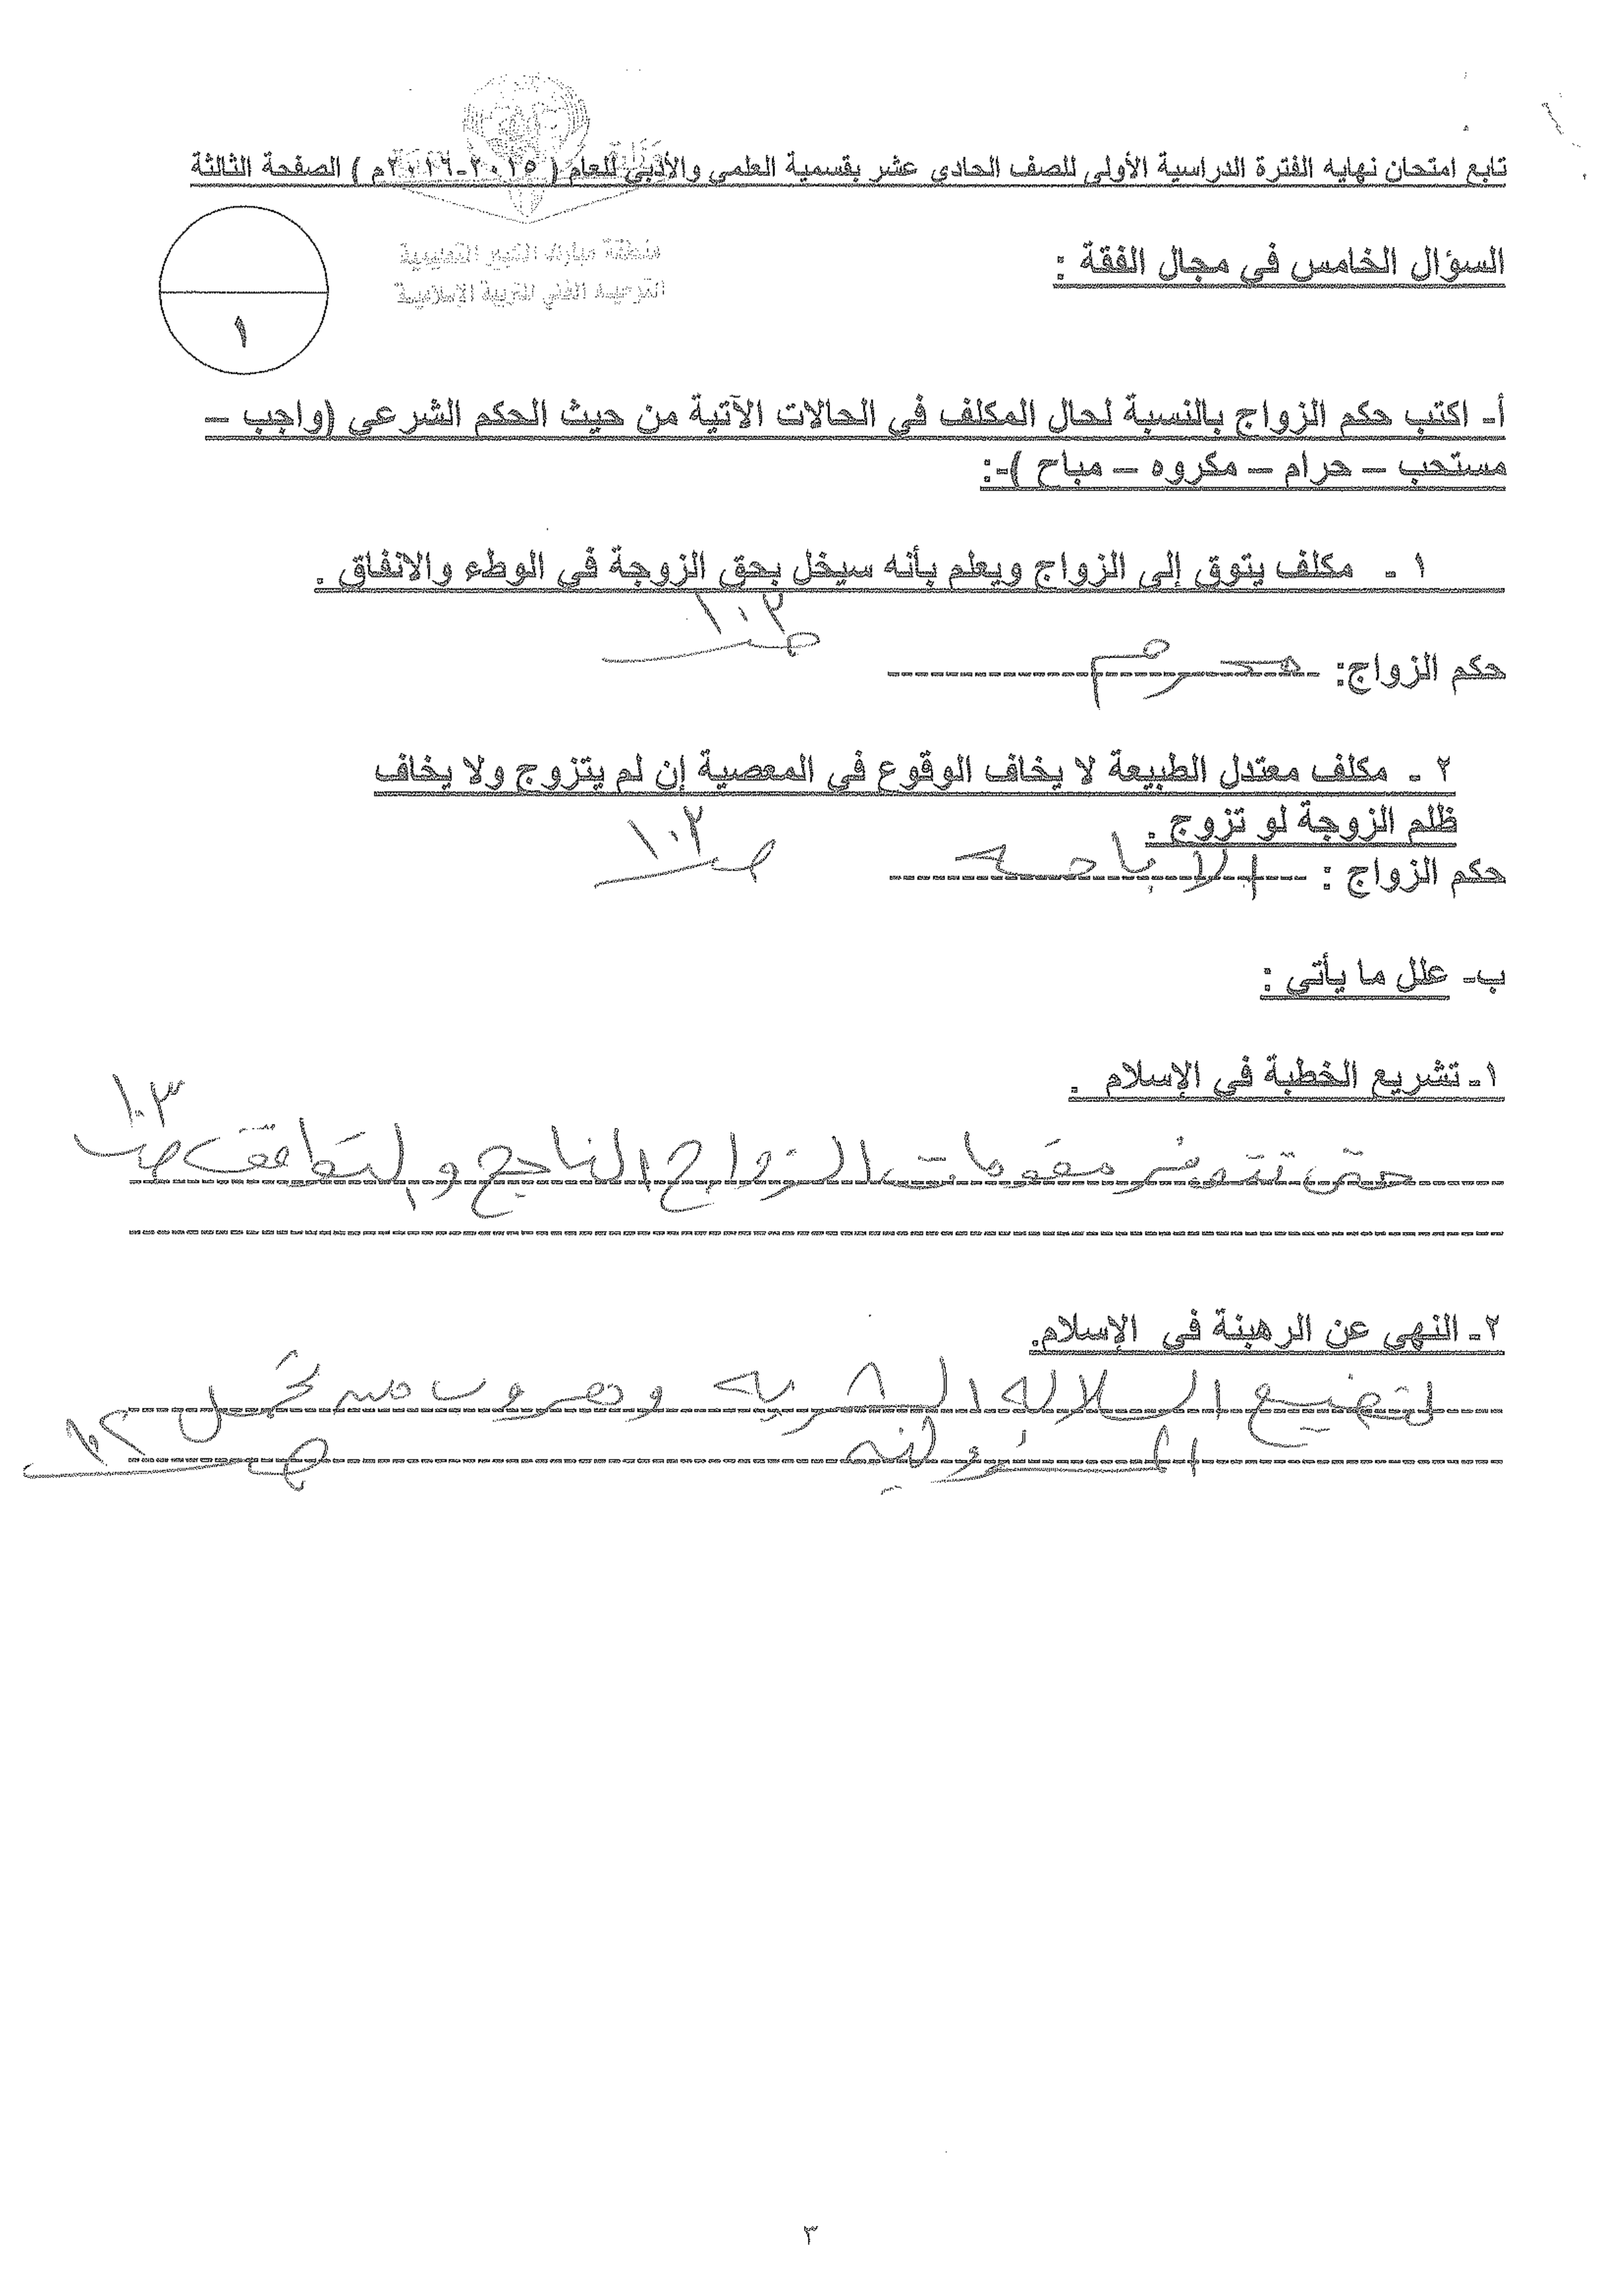 تابع امتحان نهايه الفترة الدراسية الأولى للصف الحادى عشر بقسمية العلمي والأدبي للعام ( ٢٠١٥-٢٠١٦م ) الصفحة الثالثة
منطقة مبارك الكبير التعليمية
التوجيه الفني للتربية الإسلامية
السؤال الخامس في مجال الفقة :
١
أ- اكتب حكم الزواج بالنسبة لحال المكلف في الحالات الآتية من حيث الحكم الشرعي (واجب –
مستحب – حرام – مكروه – مباح )-:
١ - مكلف يتوق إلى الزواج ويعلم بأنه سيخل بحق الزوجة في الوطء والانفاق .
حكم الزواج: محرم ص ١٠٢
٢ - مكلف معتدل الطبيعة لا يخاف الوقوع في المعصية إن لم يتزوج ولا يخاف
ظلم الزوجة لو تزوج .
حكم الزواج : الاباحه ص ١٠٢
ب- علل ما يأتي :
١- تشريع الخطبة في الإسلام .
حتى تتوفر مقومات الزواج الناجح والتوافق ص ١٠٣
٢- النهي عن الرهبنة في الإسلام.
لتضييع السلاله البشريه وهروب من تحمل
المسؤوليه ص ١٠٢
٣